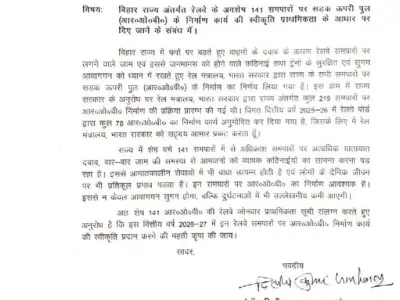 विषयः बिहार राज्य अंतर्गत रेलवे के अवशेष 141 समपारों पर सड़क ऊपरी पुल
(आर०ओ०बी०) के निर्माण कार्य की स्वीकृति प्राथमिकता के आधार पर
दिए जाने के संबंध में।
बिहार राज्य में पथों पर बढ़ते हुए वाहनों के दवाब के कारण रेलवे समपारों पर
लगने वाले जाम एवं इससे जनमानस को होने वाले कठिनाई तथा ट्रेनों के सुरक्षित एवं सुगम
आवागमन को ध्यान में रखते हुए रेल मंत्रालय, भारत सरकार द्वारा राज्य के सभी समपारों पर
सड़क ऊपरी पुल (आर०ओ०बी०) के निर्माण का निर्णय लिया गया है। इस क्रम में राज्य
सरकार के अनुरोध पर रेल मंत्रालय, भारत सरकार द्वारा राज्य अंतर्गत कुल 219 समपारों पर
आर०ओ०बी० निर्माण की प्रक्रिया प्रारंभ की गई थी। विगत वित्तीय वर्ष 2025-26 में रेलवे बोर्ड
द्वारा कुल 78 आर०ओ०बी० का निर्माण कार्य अनुमोदित कर दिया गया है, जिसके लिए में रेल
मंत्रालय, भारत सरकार को सहृदय आभार प्रकट करता हूँ।
राज्य में शेष बचे 141 समपारों में से अधिकांश समपारों पर अत्यधिक यातायात
दवाव, बार-बार जाम की समस्या से आमजनों को व्यापक कठिनाईयों का सामना करना पड़
रहा है। इससे आपातकालीन सेवाओं में भी बाधा उत्पन्न होती है एवं लोगों के दैनिक जीवन
पर भी प्रतिकूल प्रभाव पड़ता है। इन समपारों पर आर०ओ०बी० का निर्माण आवश्यक है।
इससे न केवल आवागमन सुगम होगा, बल्कि दुर्घटनाओं में भी उल्लेखनीय कमी आएगी।
अतः शेष 141 आर०ओ०बी० की रेलवे जोनवार प्राथमिकता सूची संलग्न करते हुए
अनुरोध है कि इस वित्तीय वर्ष 2026-27 में इन रेलवे समपारों पर आर०ओ०बी० निर्माण कार्य
की स्वीकृति प्रदान करने की महती कृपा की जाय।
सादर,
भवदीय